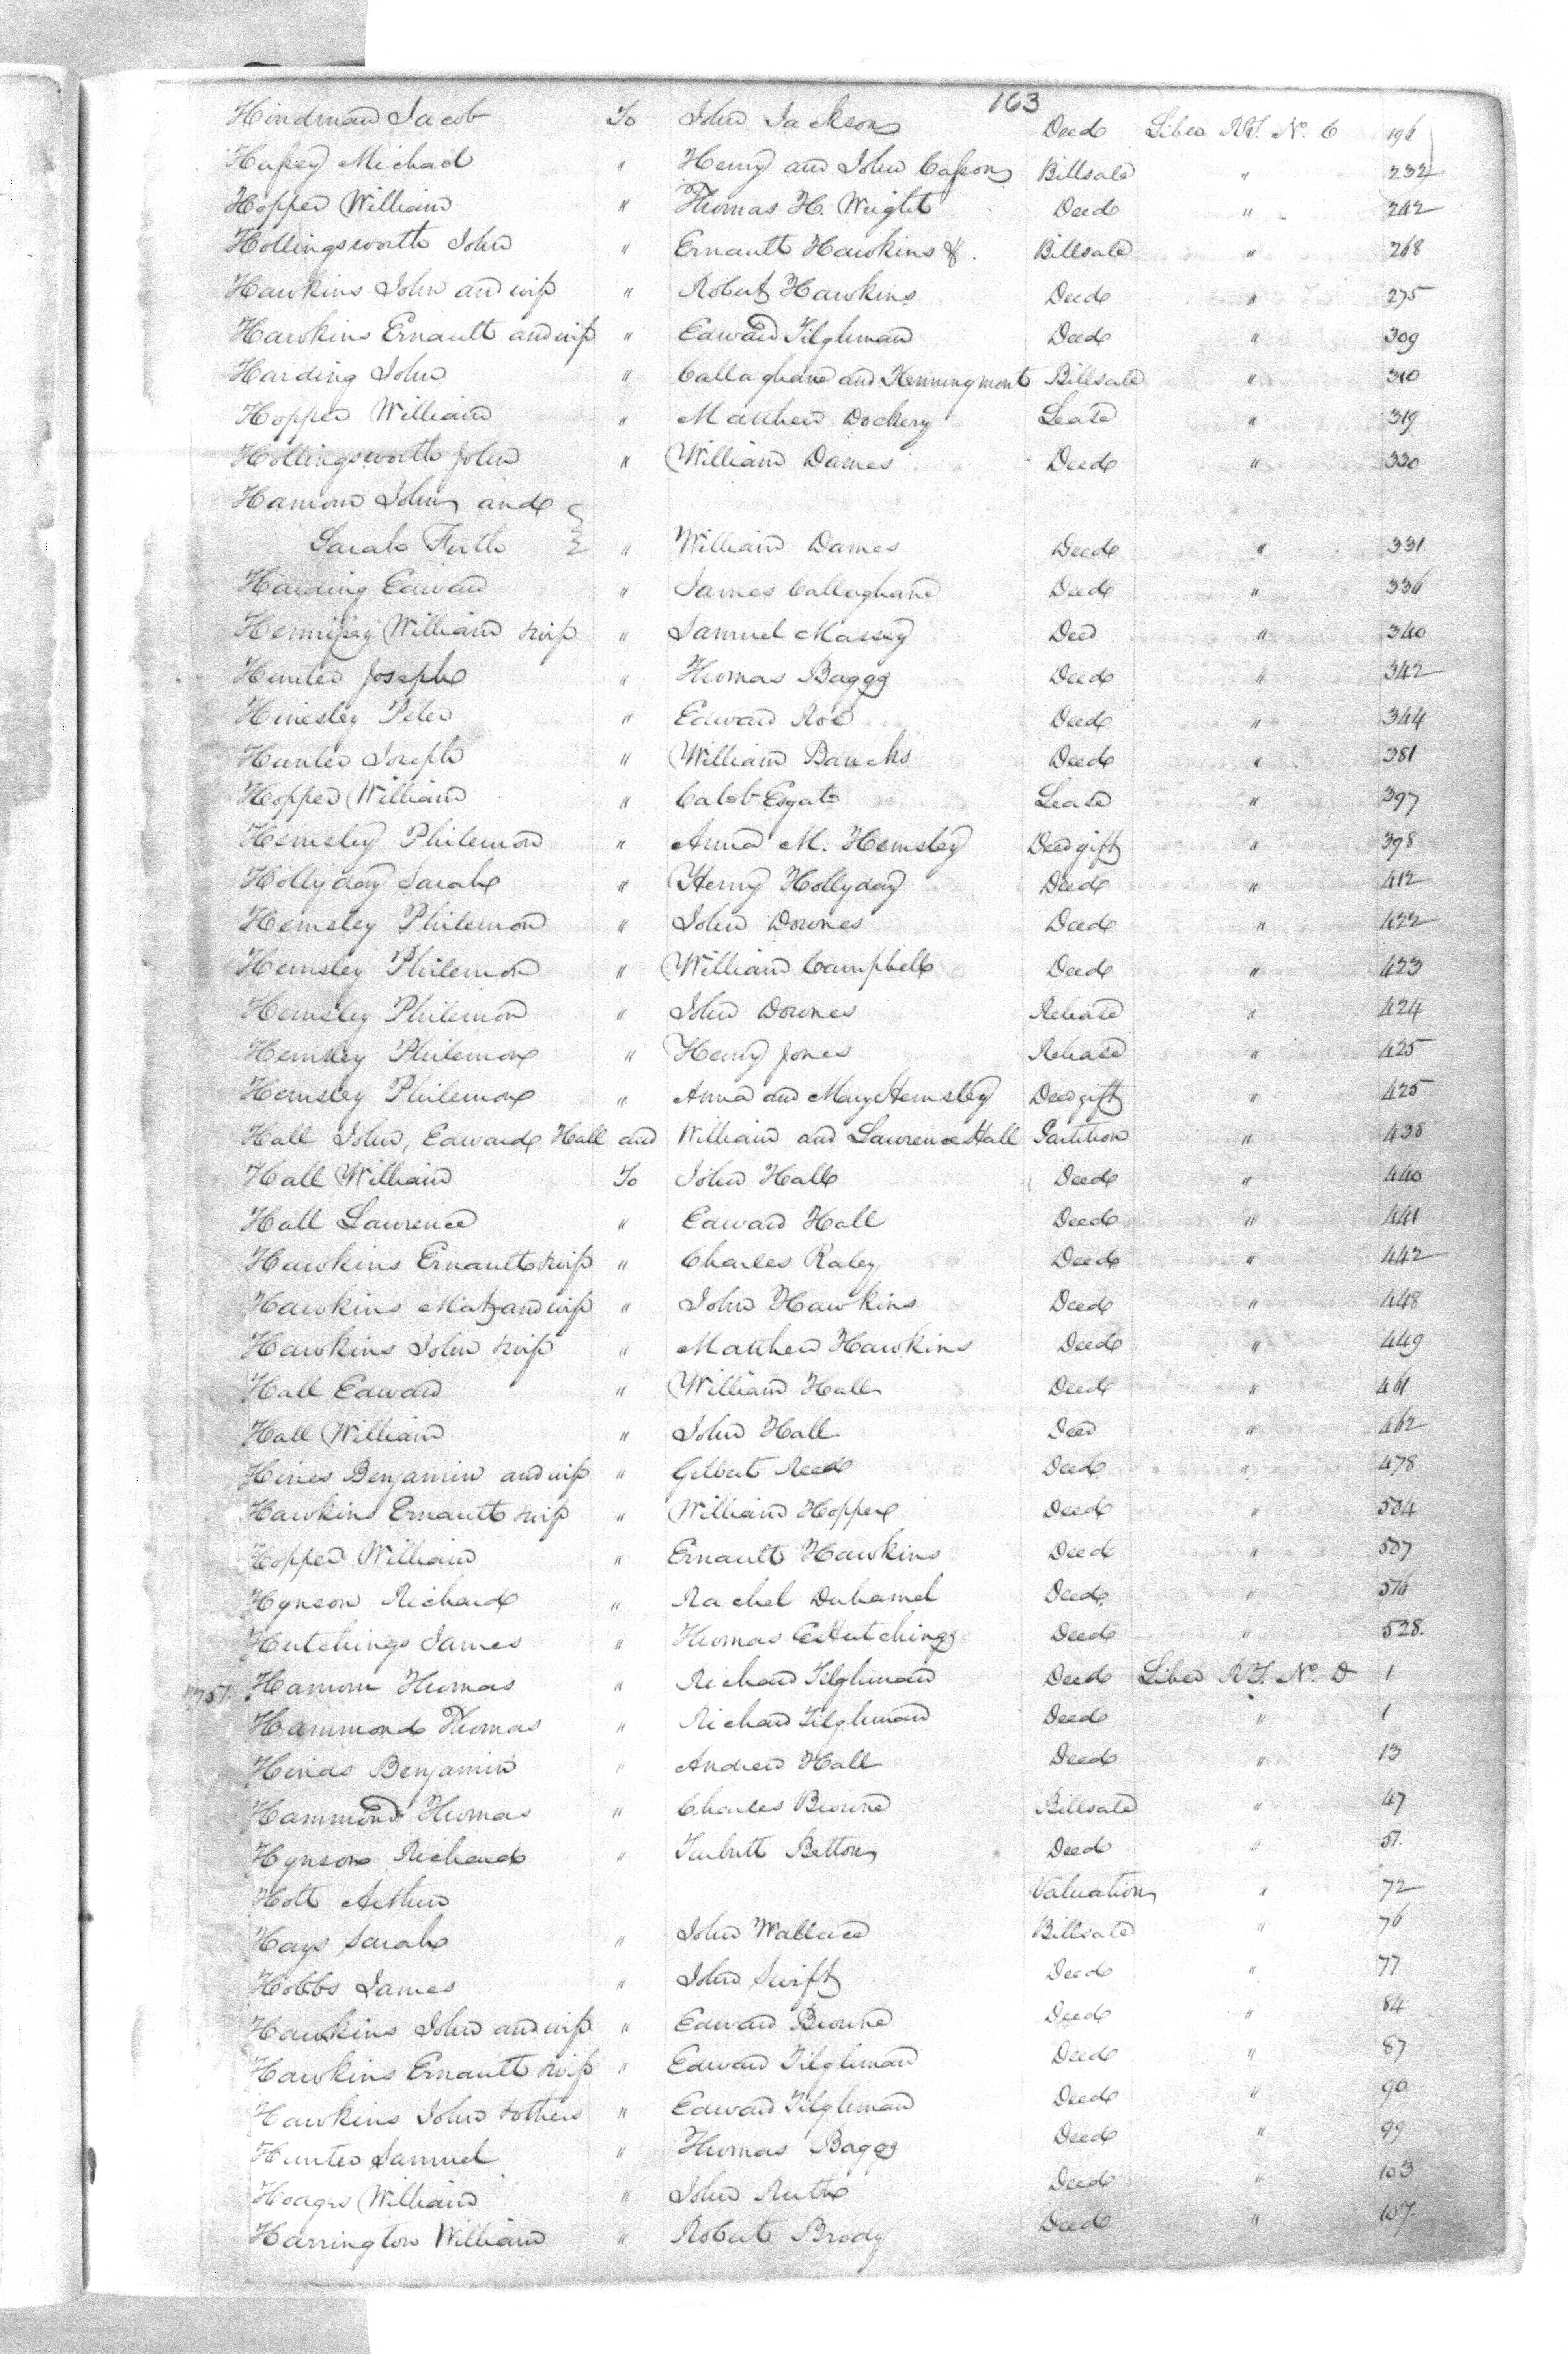 163
Hindman Jacob To John Jackson Deed Liber RT. No. C 196
Hussey Michael " Henry and John Casson Billsale " 232
Hopper William " Thomas H. Wright Deed " 242
Hollingsworth John " Ernault Hawkins &. Billsale " 268
Hawkins John and wife " Robert Hawkins Deed " 275
Hawkins Ernault and wife " Edward Tilghman Deed " 309
Harding John " Callaghane and Kenningmont Billsale " 310
Hopper William " Matthew Dockery Lease " 319
Hollingsworth John " William Dames Deed " 330
Hamom John and
Sarah Firth " William Dames Deed " 331
Harding Edward " James Callaghane Deed " 336
William & wife " Samuel Massey Deed " 340
Hunter Joseph " Thomas Baggg Deed " 342
Hinesley Peter " Edward Roe Deed " 344
Hunter Joseph " William Bancks Deed " 381
Hopper William " Caleb Esgate Lease " 397
Hemsley Philemon " Anna M. Hemsley Deed gift " 398
Hollyday Sarah " Henry Hollyday Deed " 412
Hemsley Philemon " John Downes Deed " 422
Hemsley Philemon " William Campbell Deed " 423
Hemsley Philemon " John Downes Release " 424
Hemsley Philemon " Henry Jones Release " 425
Hemsley Philemon " Anna and Mary Hemsley Deed gift " 425
Hall John, Edward Hall and William and Lawrence Hall Partition " 438
Hall William To John Hall Deed " 440
Hall Lawrence " Edward Hall Deed " 441
Hawkins Ernault & wife " Charles Raley Deed " 442
Hawkins Mat and wife " John Hawkins Deed " 448
Hawkins John & wife " Matthew Hawkins Deed " 449
Hall Edward " William Hall Deed " 461
Hall William " John Hall Deed " 462
Hines Benjamin and wife " Gilbert Reed Deed " 478
Hawkins Ernault & wife " William Hopper Deed " 504
Hopper William " Ernault Hawkins Deed " 507
Hynson Richard " Rachel Duhamel Deed " 516
Hutchings James " Thomas Hutchings Deed " 528.
1751. Hamom Thomas " Richard Tilghman Deed Liber RT. No. D 1
Hammond Thomas " Richard Tilghman Deed " 1
Hinds Benjamin " Andrew Hall Deed " 13
Hammond Thomas " Charles Browne Billsale " 47
Hynson Richard " Turbutt Betton Deed " 51.
Holt Arthur Valuation " 72
Hays Sarah " John Wallace Billsale " 76
Hobbs James " John Swift Deed " 77
Hawkins John and wife " Edward Browne Deed " 84
Hawkins Ernault & wife " Edward Tilghman Deed " 87
Hawkins John & others " Edward Tilghman Deed " 90
Hunter Samuel " Thomas Baggs Deed " 99
Hodges William " John Ruth Deed " 103
Harrington William " Robert Brody Deed " 107.